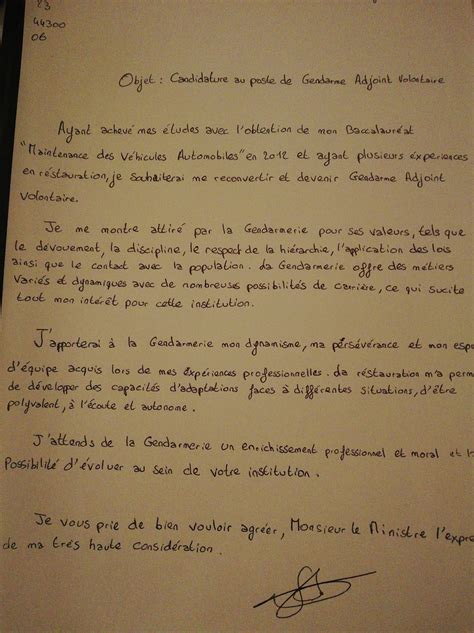 23
44300
06
Objet : Candidature au poste de Gendarme Adjoint Volontaire
Ayant achevé mes études avec l'obtention de mon Baccalauréat
"Maintenance des Véhicules Automobiles" en 2012 et ayant plusieurs expériences
en restauration, je souhaiterai me reconvertir et devenir Gendarme Adjoint
Volontaire.
Je me montre attiré par la Gendarmerie pour ses valeurs, tels que
le dévouement, la discipline, le respect de la hiérarchie, l'application des lois
ainsi que le contact avec la population. La Gendarmerie offre des métiers
variés et dynamiques avec de nombreuses possibilités de carrière, ce qui sucite
tout mon intérêt pour cette institution.
J'apporterai à la Gendarmerie mon dynamisme, ma persévérance et mon esp
d'équipe acquis lors de mes expériences professionnelles. La restauration m'a perm
de développer des capacités d'adaptations faces à différentes situations, d'être
polyvalent, à l'écoute et autonome.
J'attends de la Gendarmerie un enrichissement professionnel et moral et l
Possibilité d'évoluer au sein de votre institution.
Je vous prie de bien vouloir agréer, Monsieur le Ministre l'expre
de ma très haute considération.